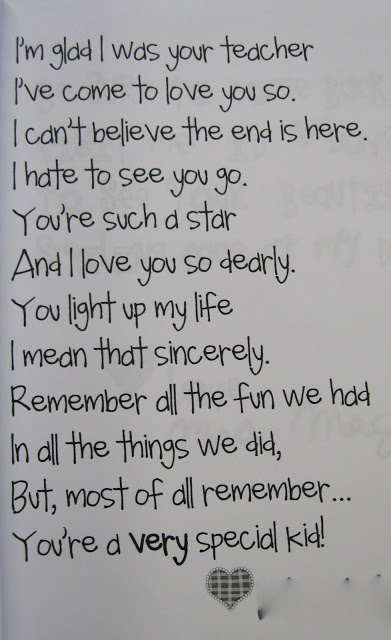 I'm glad I was your teacher
I've come to love you so.
I can't believe the end is here.
I hate to see you go.
You're such a star
And I love you so dearly.
You light up my life
I mean that sincerely.
Remember all the fun we had
In all the things we did,
But, most of all remember...
You're a very special kid!